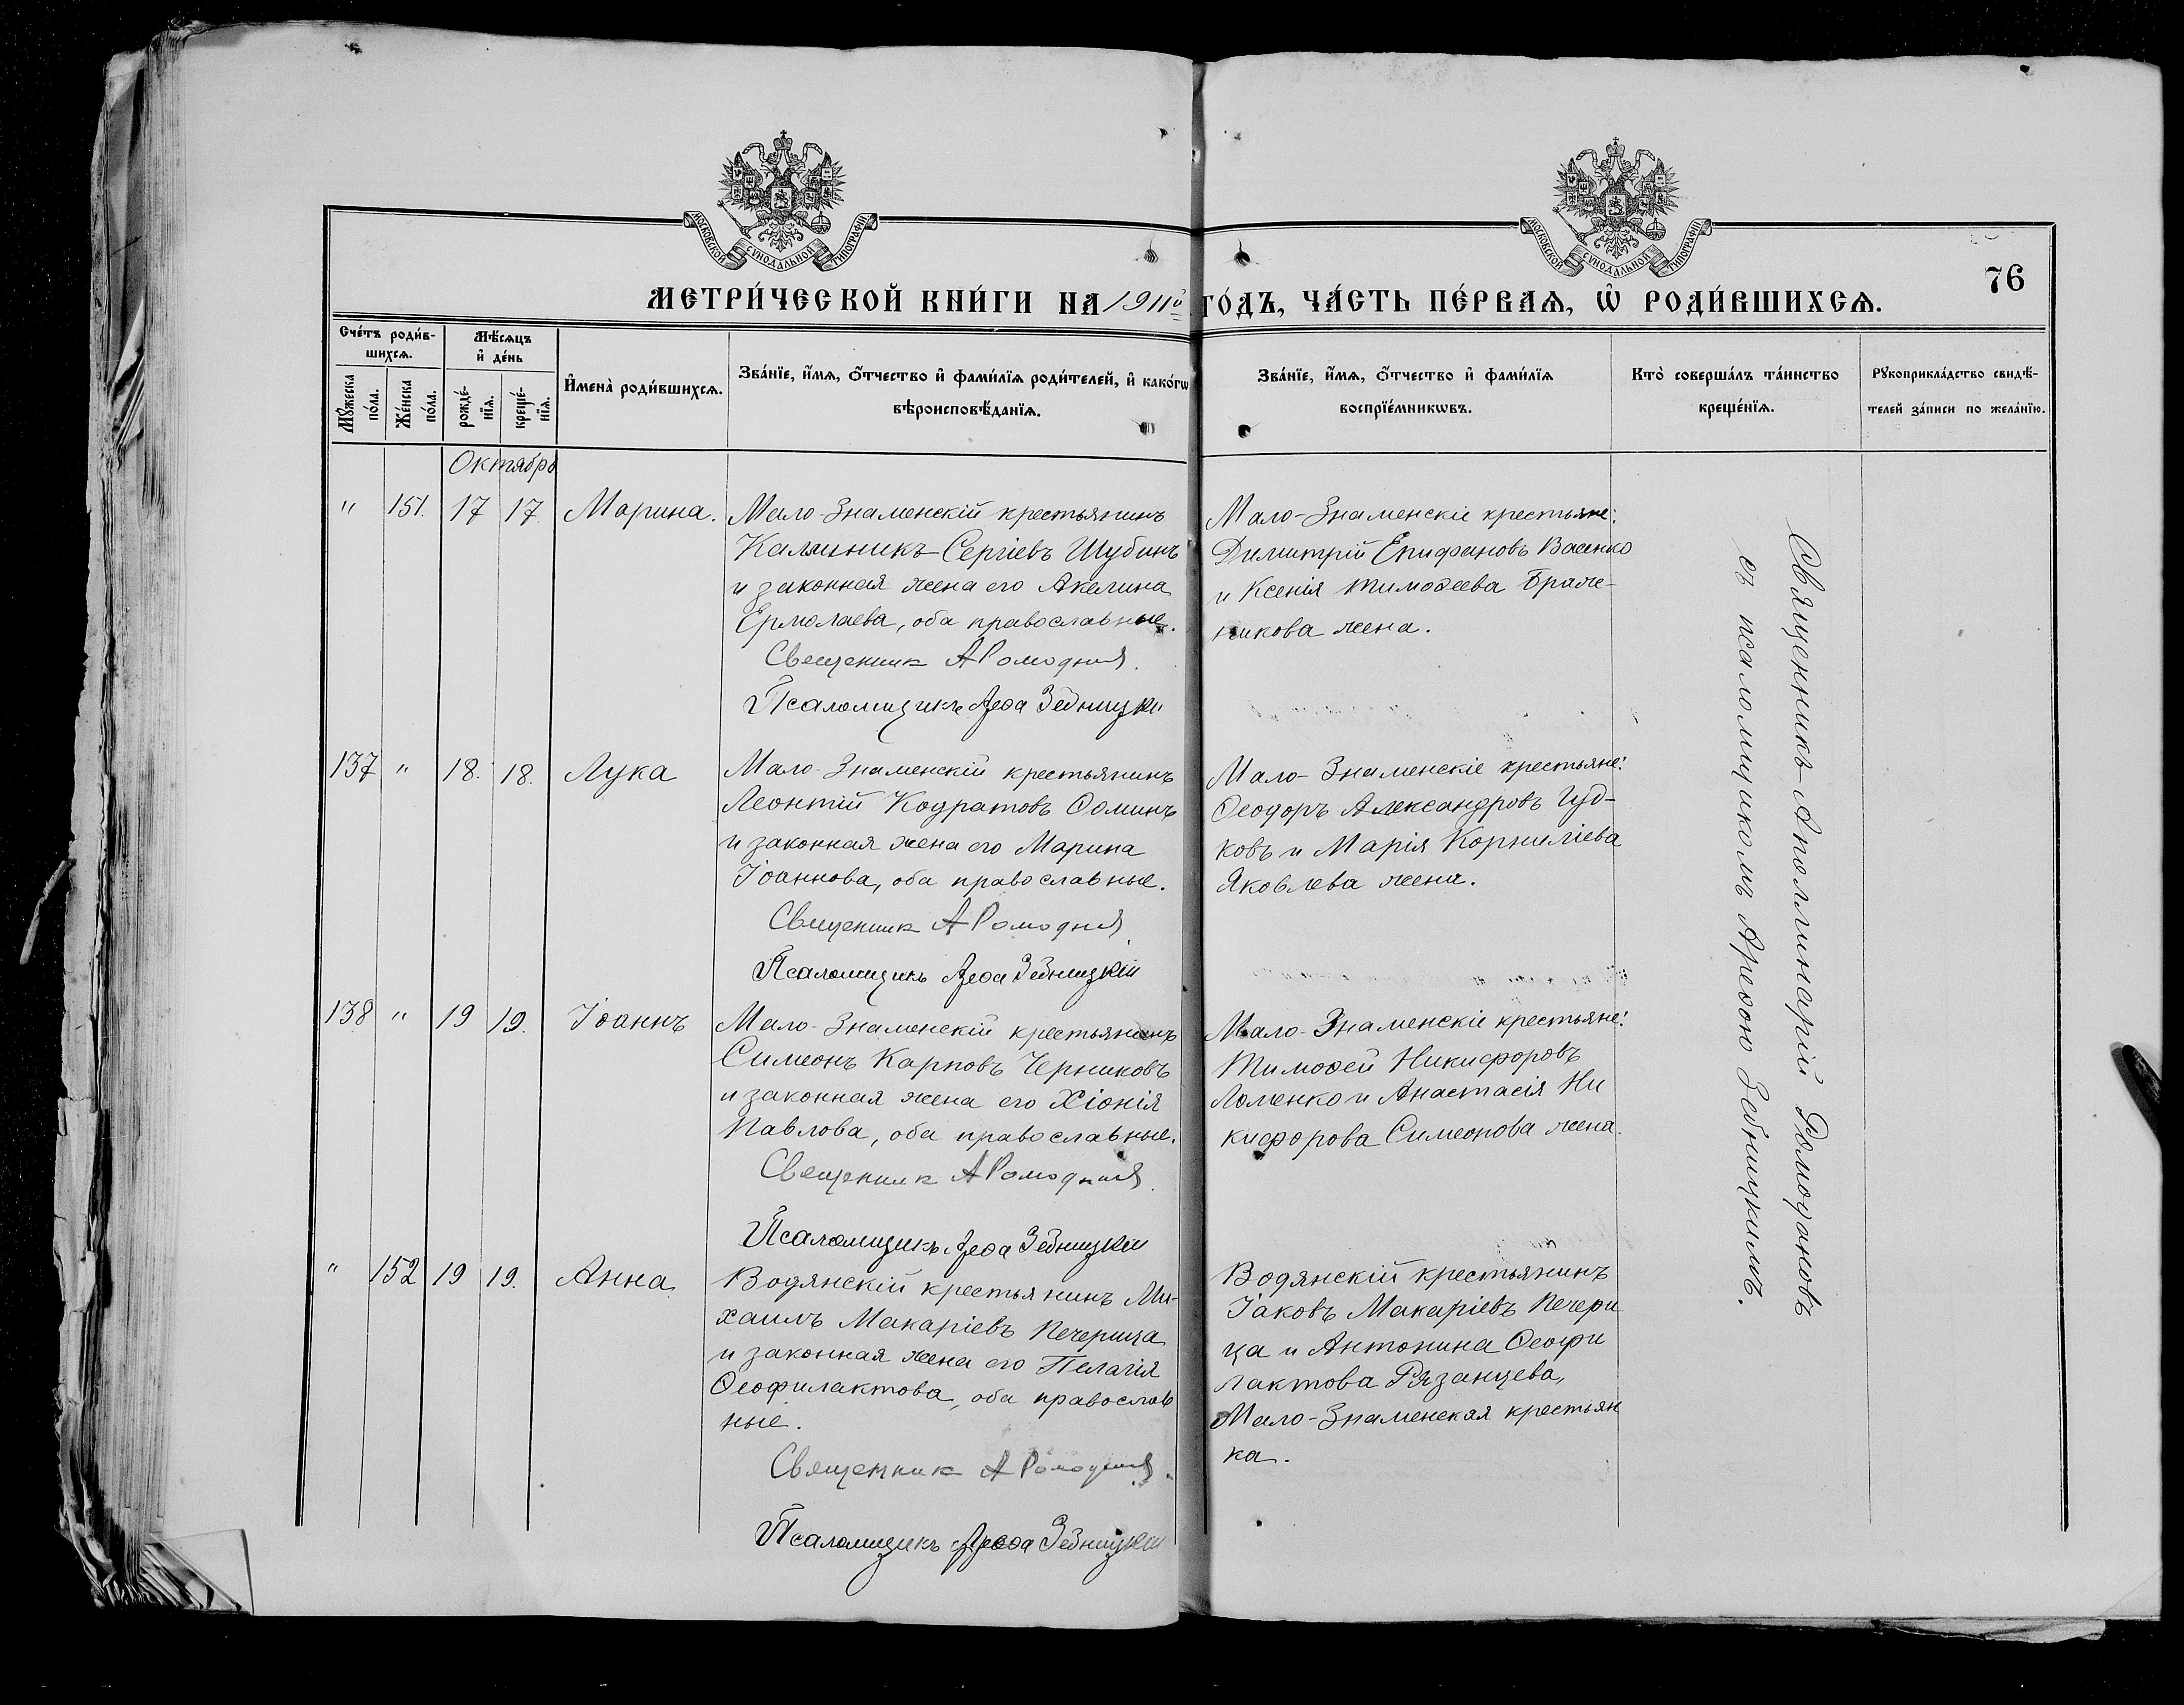 МОСКОВСКОЙ СѴНОДАЛЬНОЙ ТИПОГРАФІИ
МОСКОВСКОЙ СѴНОДАЛЬНОЙ ТИПОГРАФІИ
76
МЕТРИ́ЧЕСКОЙ КНИ́ГИ НА 1911й ГО́ДЪ, ЧА́СТЬ ПЕ́РВАѦ, Ѡ҆ РОДИ́ВШИХСѦ.
Сче́тъ роди́в-
шихсѧ.
Мꙋ́жеска
по́ла.
Же́нска
по́ла.
Мѣ́сѧцъ
и҆ де́нь
рожде́-
нїѧ.
креще́-
нїѧ.
И҆мена̀ роди́вшихсѧ.
Зва́нїе, и҆́мѧ, ѻ҆́тчество и҆ фами́лїѧ роди́телей, и҆ како́гѡ
вѣроисповѣ́данїѧ.
Зва́нїе, и҆́мѧ, ѻ҆́тчество и҆ фами́лїѧ
воспрїе́мникѡвъ.
Кто̀ соверша́лъ та́инство
креще́нїѧ.
Рꙋкоприкла́дство свидѣ́-
телей за́писи по жела́нїю.
Октябрь
" 151. 17 17. Марина.
Мало-Знаменскій крестьянинъ
Каллиникъ Сергіевъ Шубинъ
и законная жена его Акелина
Ермолаева, оба православные.
Священник А Ромодановъ
Псаломщикъ Ареѳа Зебницкій
Мало-Знаменскіе крестьяне:
Димитрій Епифановъ Васенко
и Ксенія Тимоѳеева Браже-
никова жена.
137 " 18. 18. Лука
Мало-Знаменскій крестьянинъ
Леонтій Кодратовъ Ѳоминъ
и законная жена его Марина
Іоаннова, оба православные.
Священник А Ромодановъ
Псаломщикъ Ареѳа Зебницкій
Мало-Знаменскіе крестьяне:
Ѳеодоръ Александровъ Гуд-
ковъ и Марія Корниліева
Яковлева жена.
138 " 19 19. Іоаннъ
Мало-Знаменскій крестьянинъ
Симеонъ Карповъ Черниковъ
и законная жена его Хіонія
Павлова, оба православные.
Священник А Ромодановъ
Псаломщикъ Ареѳа Зебницкій
Мало-Знаменскіе крестьяне:
Тимоѳей Никифоровъ
Ломенко и Анастасія Ни
кифорова Симеонова жена.
" 152 19 19. Анна
Водянскій крестьянинъ Ми-
хаилъ Макаріевъ Печерица
и законная жена его Пелагія
Ѳеофилактова, оба православ
ные.
Священник А Ромодановъ
Псаломщикъ Ареѳа Зебницкій
Водянскій крестьянинъ
Іаковъ Макаріевъ Печери
ца и Антонина Ѳеофи
лактова Рязанцева,
Мало-Знаменская крестьян
ка.
Священникъ Аполлинарій Ромодановъ
съ псаломщикомъ Ареѳою Зебницкимъ.